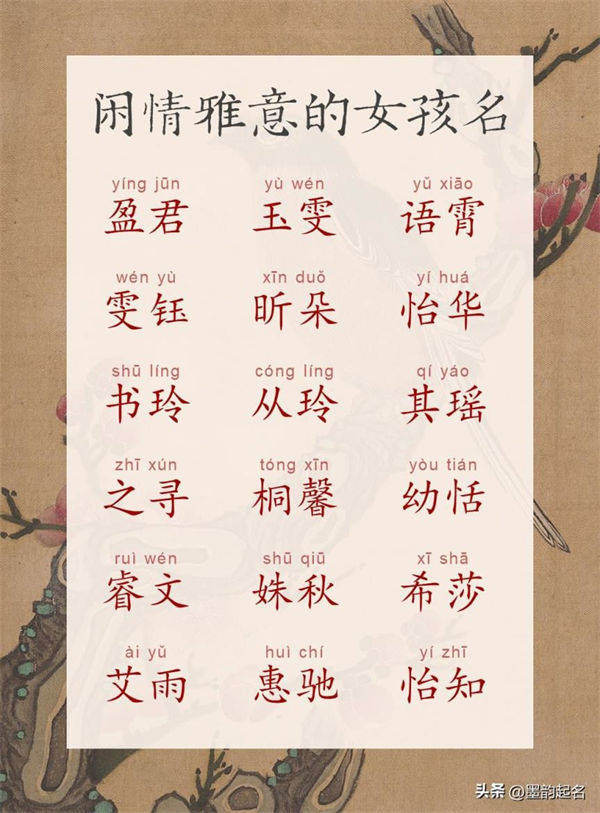 闲情雅意的女孩名
yíng jūn yù wén yǔ xiāo
盈君 玉雯 语霄
wén yù xīn duǒ yí huá
雯钰 昕朵 怡华
shū líng cóng líng qí yáo
书玲 从玲 其瑶
zhī xún tóng xīn yòu tián
之寻 桐馨 幼恬
ruì wén shū qiū xī shā
睿文 姝秋 希莎
ài yǔ huì chí yí zhī
艾雨 惠驰 怡知
头条 @墨韵起名